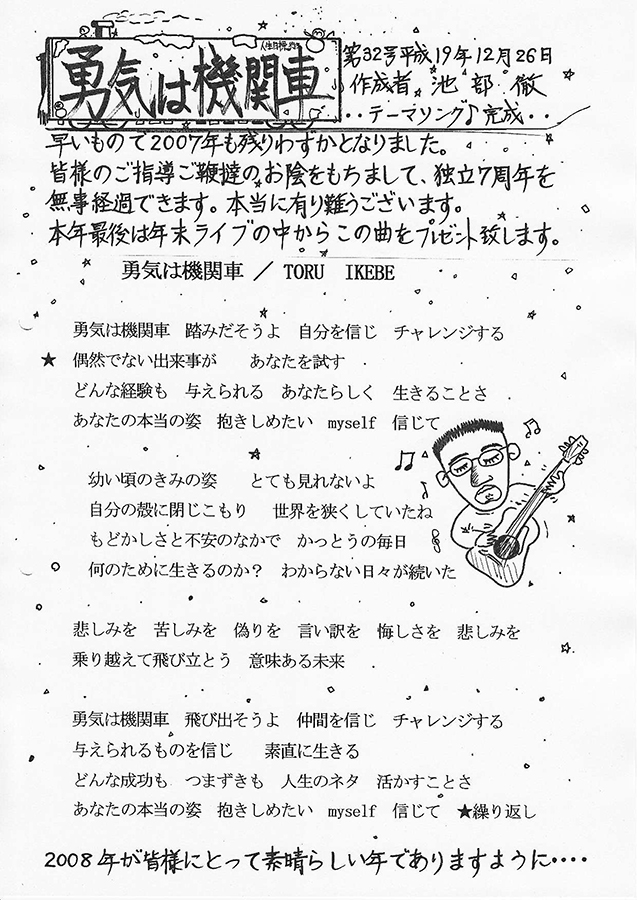 勇気は機関車
第32号平成19年12月26日
作成者 池部 徹
・・テーマソング♪完成・・
早いもので2007年も残りわずかとなりました。
皆様のご指導ご鞭撻のお陰をもちまして、独立7周年を
無事経過できます。本当に有り難うございます。
本年最後は年末ライブの中からこの曲をプレゼント致します。
勇気は機関車 / TORU IKEBE
勇気は機関車 踏みだそうよ 自分を信じ チャレンジする
★ 偶然でない出来事が あなたを試す
どんな経験も 与えられる あなたらしく 生きることさ
あなたの本当の姿 抱きしめたい myself 信じて
幼い頃のきみの姿 とても見れないよ
自分の殻に閉じこもり 世界を狭くしていたね
もどかしさと不安のなかで かっとうの毎日
何のために生きるのか? わからない日々が続いた
悲しみを 苦しみを 偽りを 言い訳を 悔しさを 悲しみを
乗り越えて飛び立とう 意味ある未来
勇気は機関車 飛び出そうよ 仲間を信じ チャレンジする
与えられるものを信じ 素直に生きる
どんな成功も つまずきも 人生のネタ 活かすことさ
あなたの本当の姿 抱きしめたい myself 信じて ★繰り返し
2008年が皆様にとって素晴らしい年でありますように・・・・